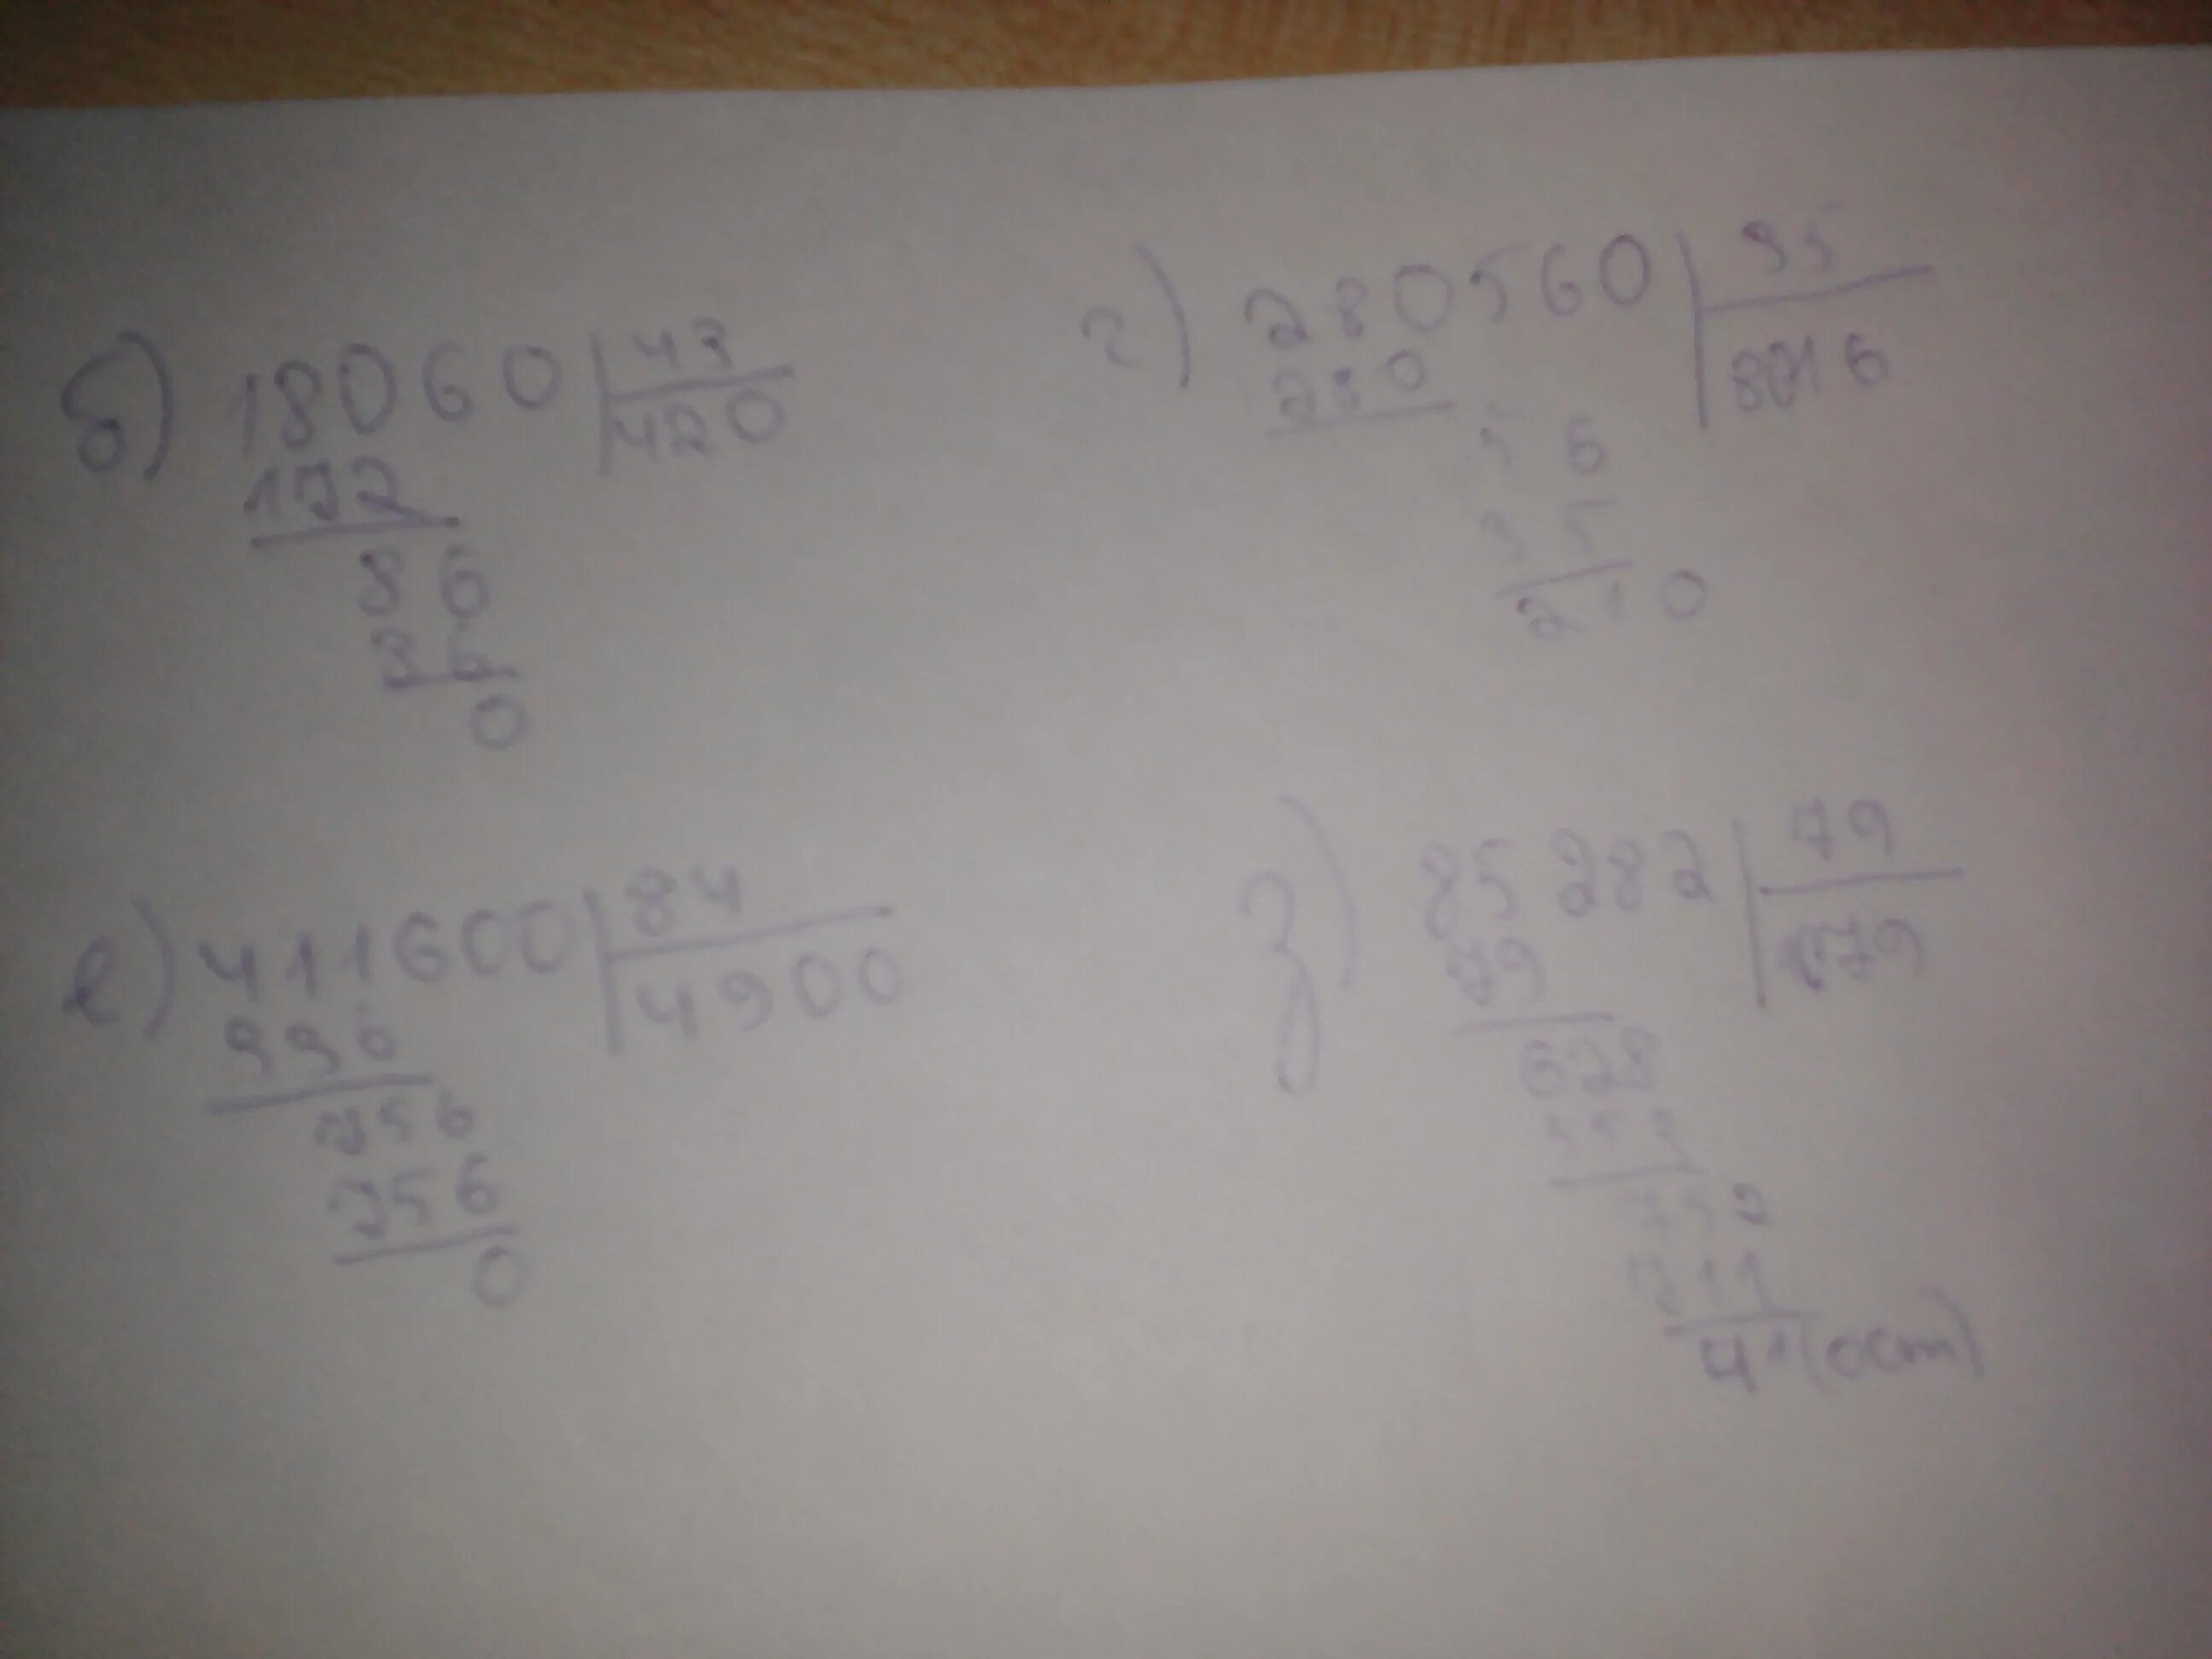 б) 18060 | 43
172 | 420
86
86
0
г) 280560 | 35
280 | 8016
56
35
210
е) 411600 | 84
336 | 4900
756
756
0
з) 85282 | 79
79
628
553
752
711
41 (ост)